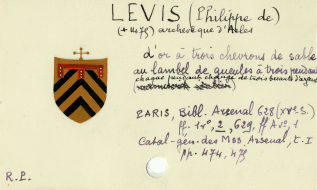 LEVIS (Philippe de)
(+ 1475) archevêque d'Arles
d'or à trois chevrons de sable
au lambel de gueules à trois pendants
chaque pendant chargé de trois besants d'argent
PARIS, Bibl. Arsenal 628 (XVe s.)
ff. 1 r°, 2, 629, ff A v°, 1
Catal. gén. des MSS Arsenal, t. I
pp. 474, 475
R.P.